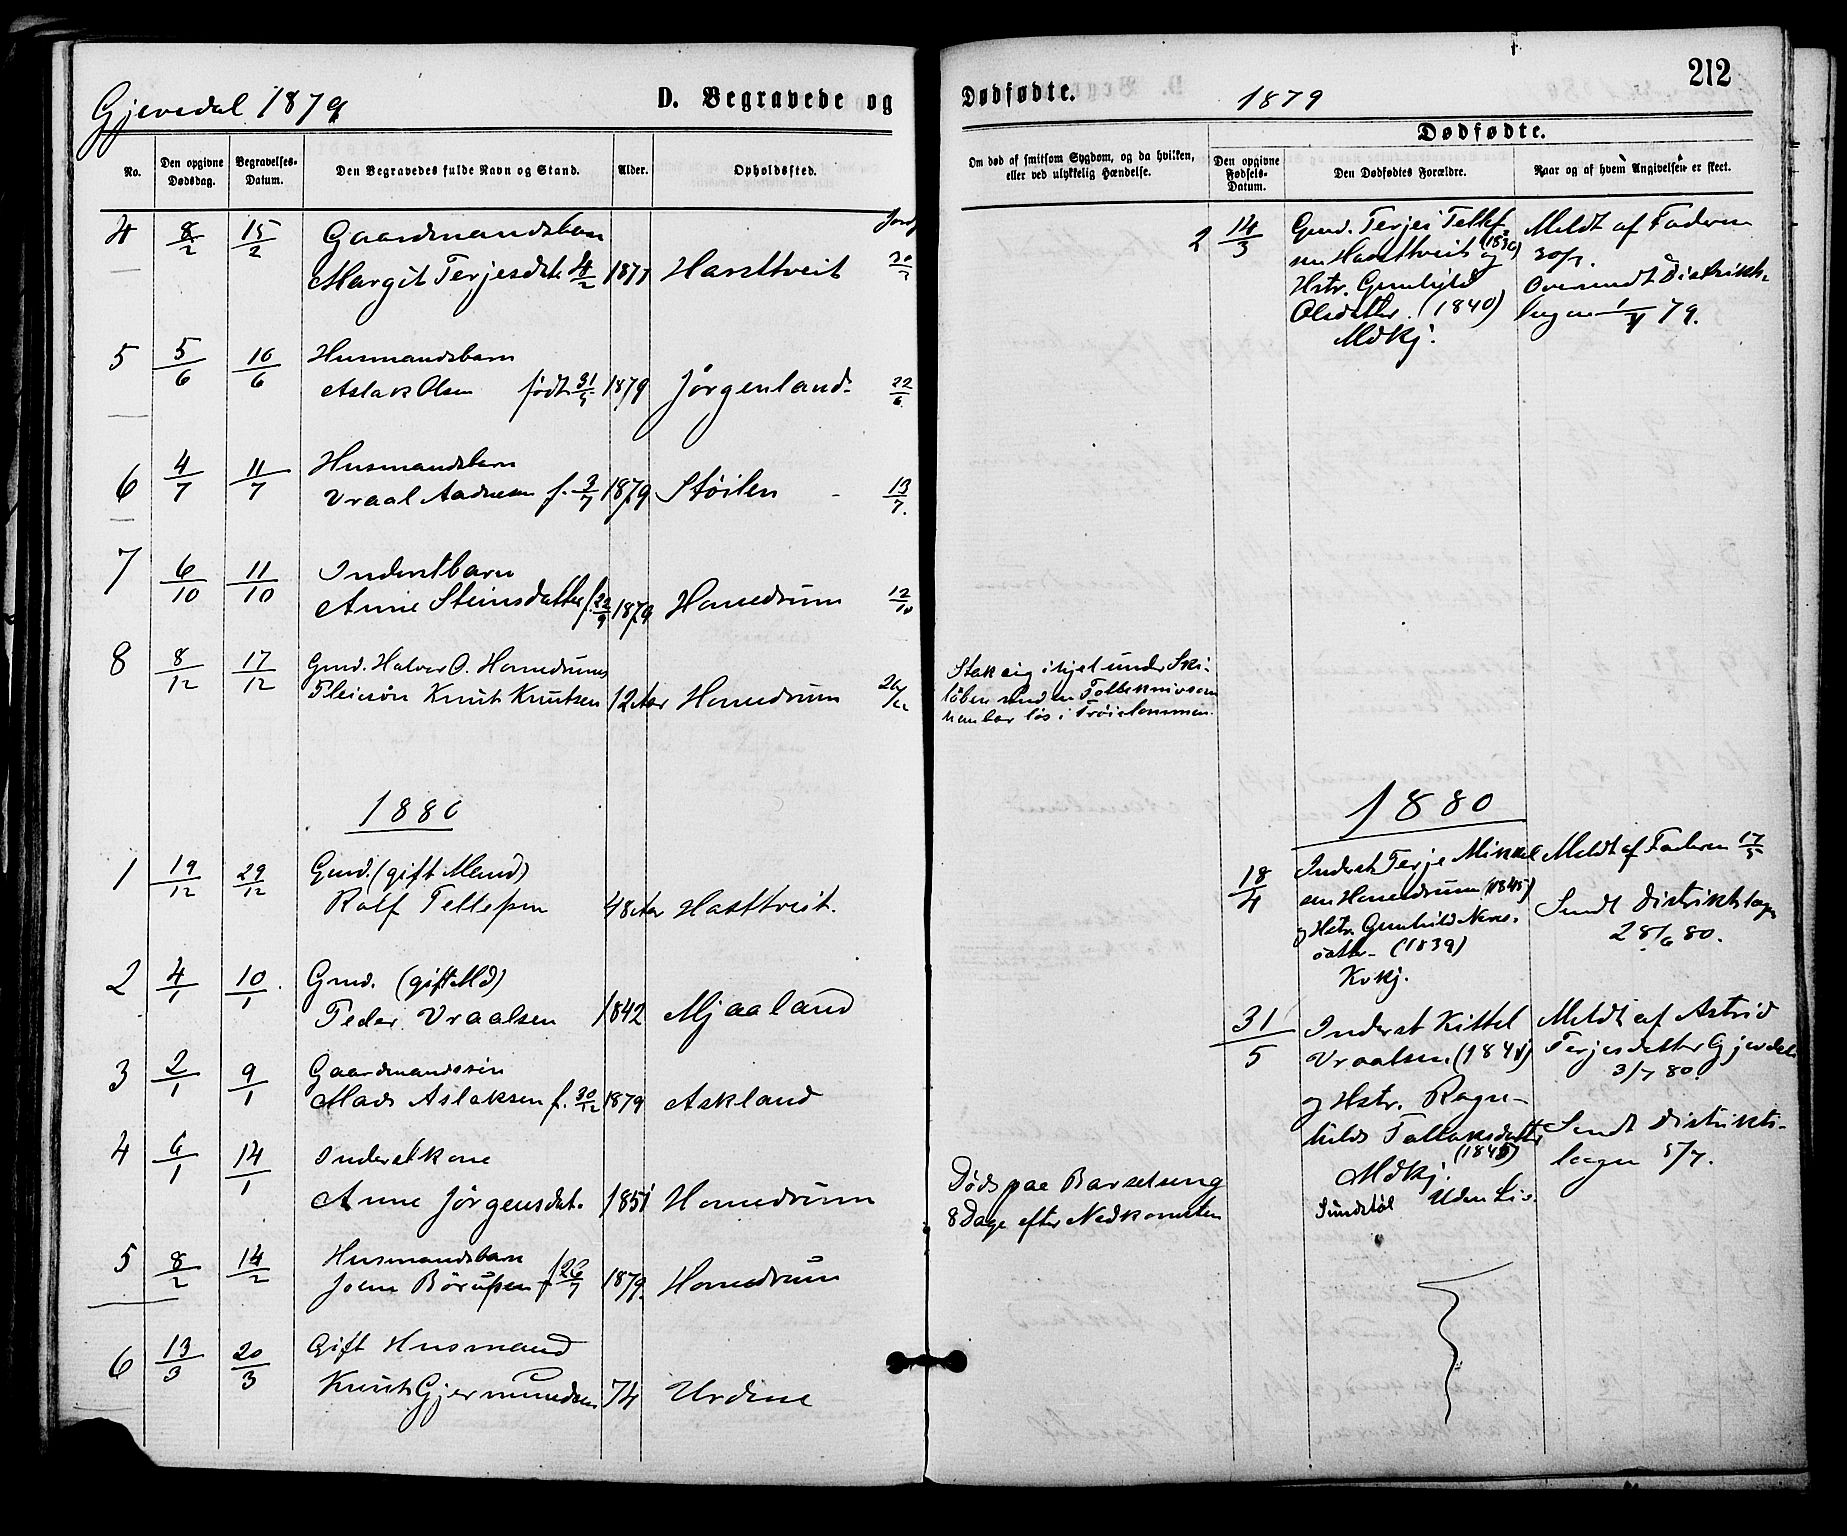 212
Gjevedal 1879
D. Begravede og Dødfødte.
1879
No.
Den opgivne Dødsdag.
Begravelses-Datum.
Den Begravedes fulde Navn og Stand.
Alder.
Opholdssted.
Om død af smitsom Sygdom, og da hvilken,
eller ved ulykkelig Hændelse.
Dødfødte.
Den opgivne Fødsels-Datum.
Den Dødfødtes Forældre.
Naar og af hvem Angivelsen er skeet.
4 8/2 15/2 Gaardmandsbarn
Margit Terjesdt. 4/2 1877 Hasttveit
5 5/6 10/6 Husmandsbarn
Aslak Olsen født 31/5 1879 Jørgenland 22/6
6 4/7 11/7 Husmandsbarn
Vraal Aadnesen f. 3/7 1879 Støilen 13/7.
7 6/10 11/10 Inderstbarn
Anne Steinsdatter f. 22/9 1879 Homedrum 12/10
8 8/12 17/12 Gmd. Halvor O. Homedrums
Pleiesøn Knut Knutsen 12 Aar Homedrum
Stak sig ihjel under Ski-
løben med en Tollekniv som
han bar løs i Trøielommen.
2 14/3 Gmd. Terjei Tellef
sen Hasttveit og
Hstr. Gunhild
Olsdatter. (1840)
Mdkj.
Meldt af Faderen
30/3.
Oversendt Distrikts-
lægen 79.
1880
1 19/12 29/12 Gmd. (gift Mand)
Rolf Tellefsen 48 Aar Hasttveit.
2 4/1 10/1 Gmd. (gift Md)
Peder Vraalsen 1842 Mjaaland
3 2/1 9/1 Gaardmandssøn
Mads Aslaksen f. 30/12 1879 Askland
4 6/1 14/1 Inderstkone
Anne Jørgensdat. 1851 Homedrum
Døds paa Barselseng
8 Dage efter Nedkomsten
5 8/2 14/2 Husmandsbarn
Joen Børufsen f 26/7 1879. Homedrum
6 13/3 20/3 Gift Husmand
Knut Gjermundsen 74 Urdine
1880
18/4 Inderst Terje Mikkel
sen Homedrum (1845)
og Hstr. Gunhild Ners-
datter (1839)
Kvkj.
Meldt af Faderen 17/5
Sendt Distriktslægen
28/6 80.
31/5 Inderst Kittel
Vraalsen (1841)
og Hstr. Ragn-
hild Tallaksdatter
(1845)
Mdkj.
Sundstøl Uden Liv.
Meldt af Astrid
Terjesdatter Gjevdal
3/7 80.
Sendt Distrikts-
lægen 5/7.